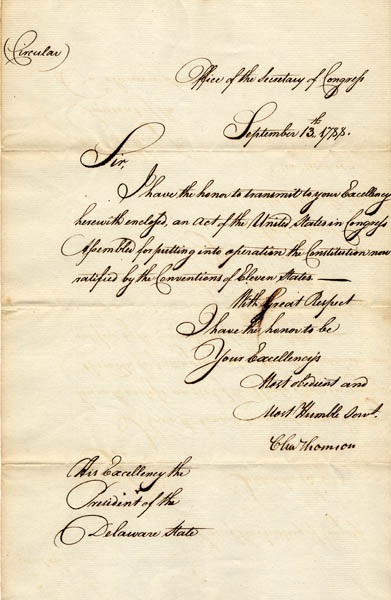 (Circular)
Office of the Secretary of Congress
September 13.th 1788.
Sir,
I have the honor to transmit to your Excellency
herewith enclosed, an Act of the United States in Congress
Assembled for putting into operation the Constitution now
ratified by the Conventions of Eleven States —
With Great Respect
I have the honor to be
Your Excellency's
Most obedient and
Most Humble Servt.
Cha Thomson
His Excellency the
President of the
Delaware State